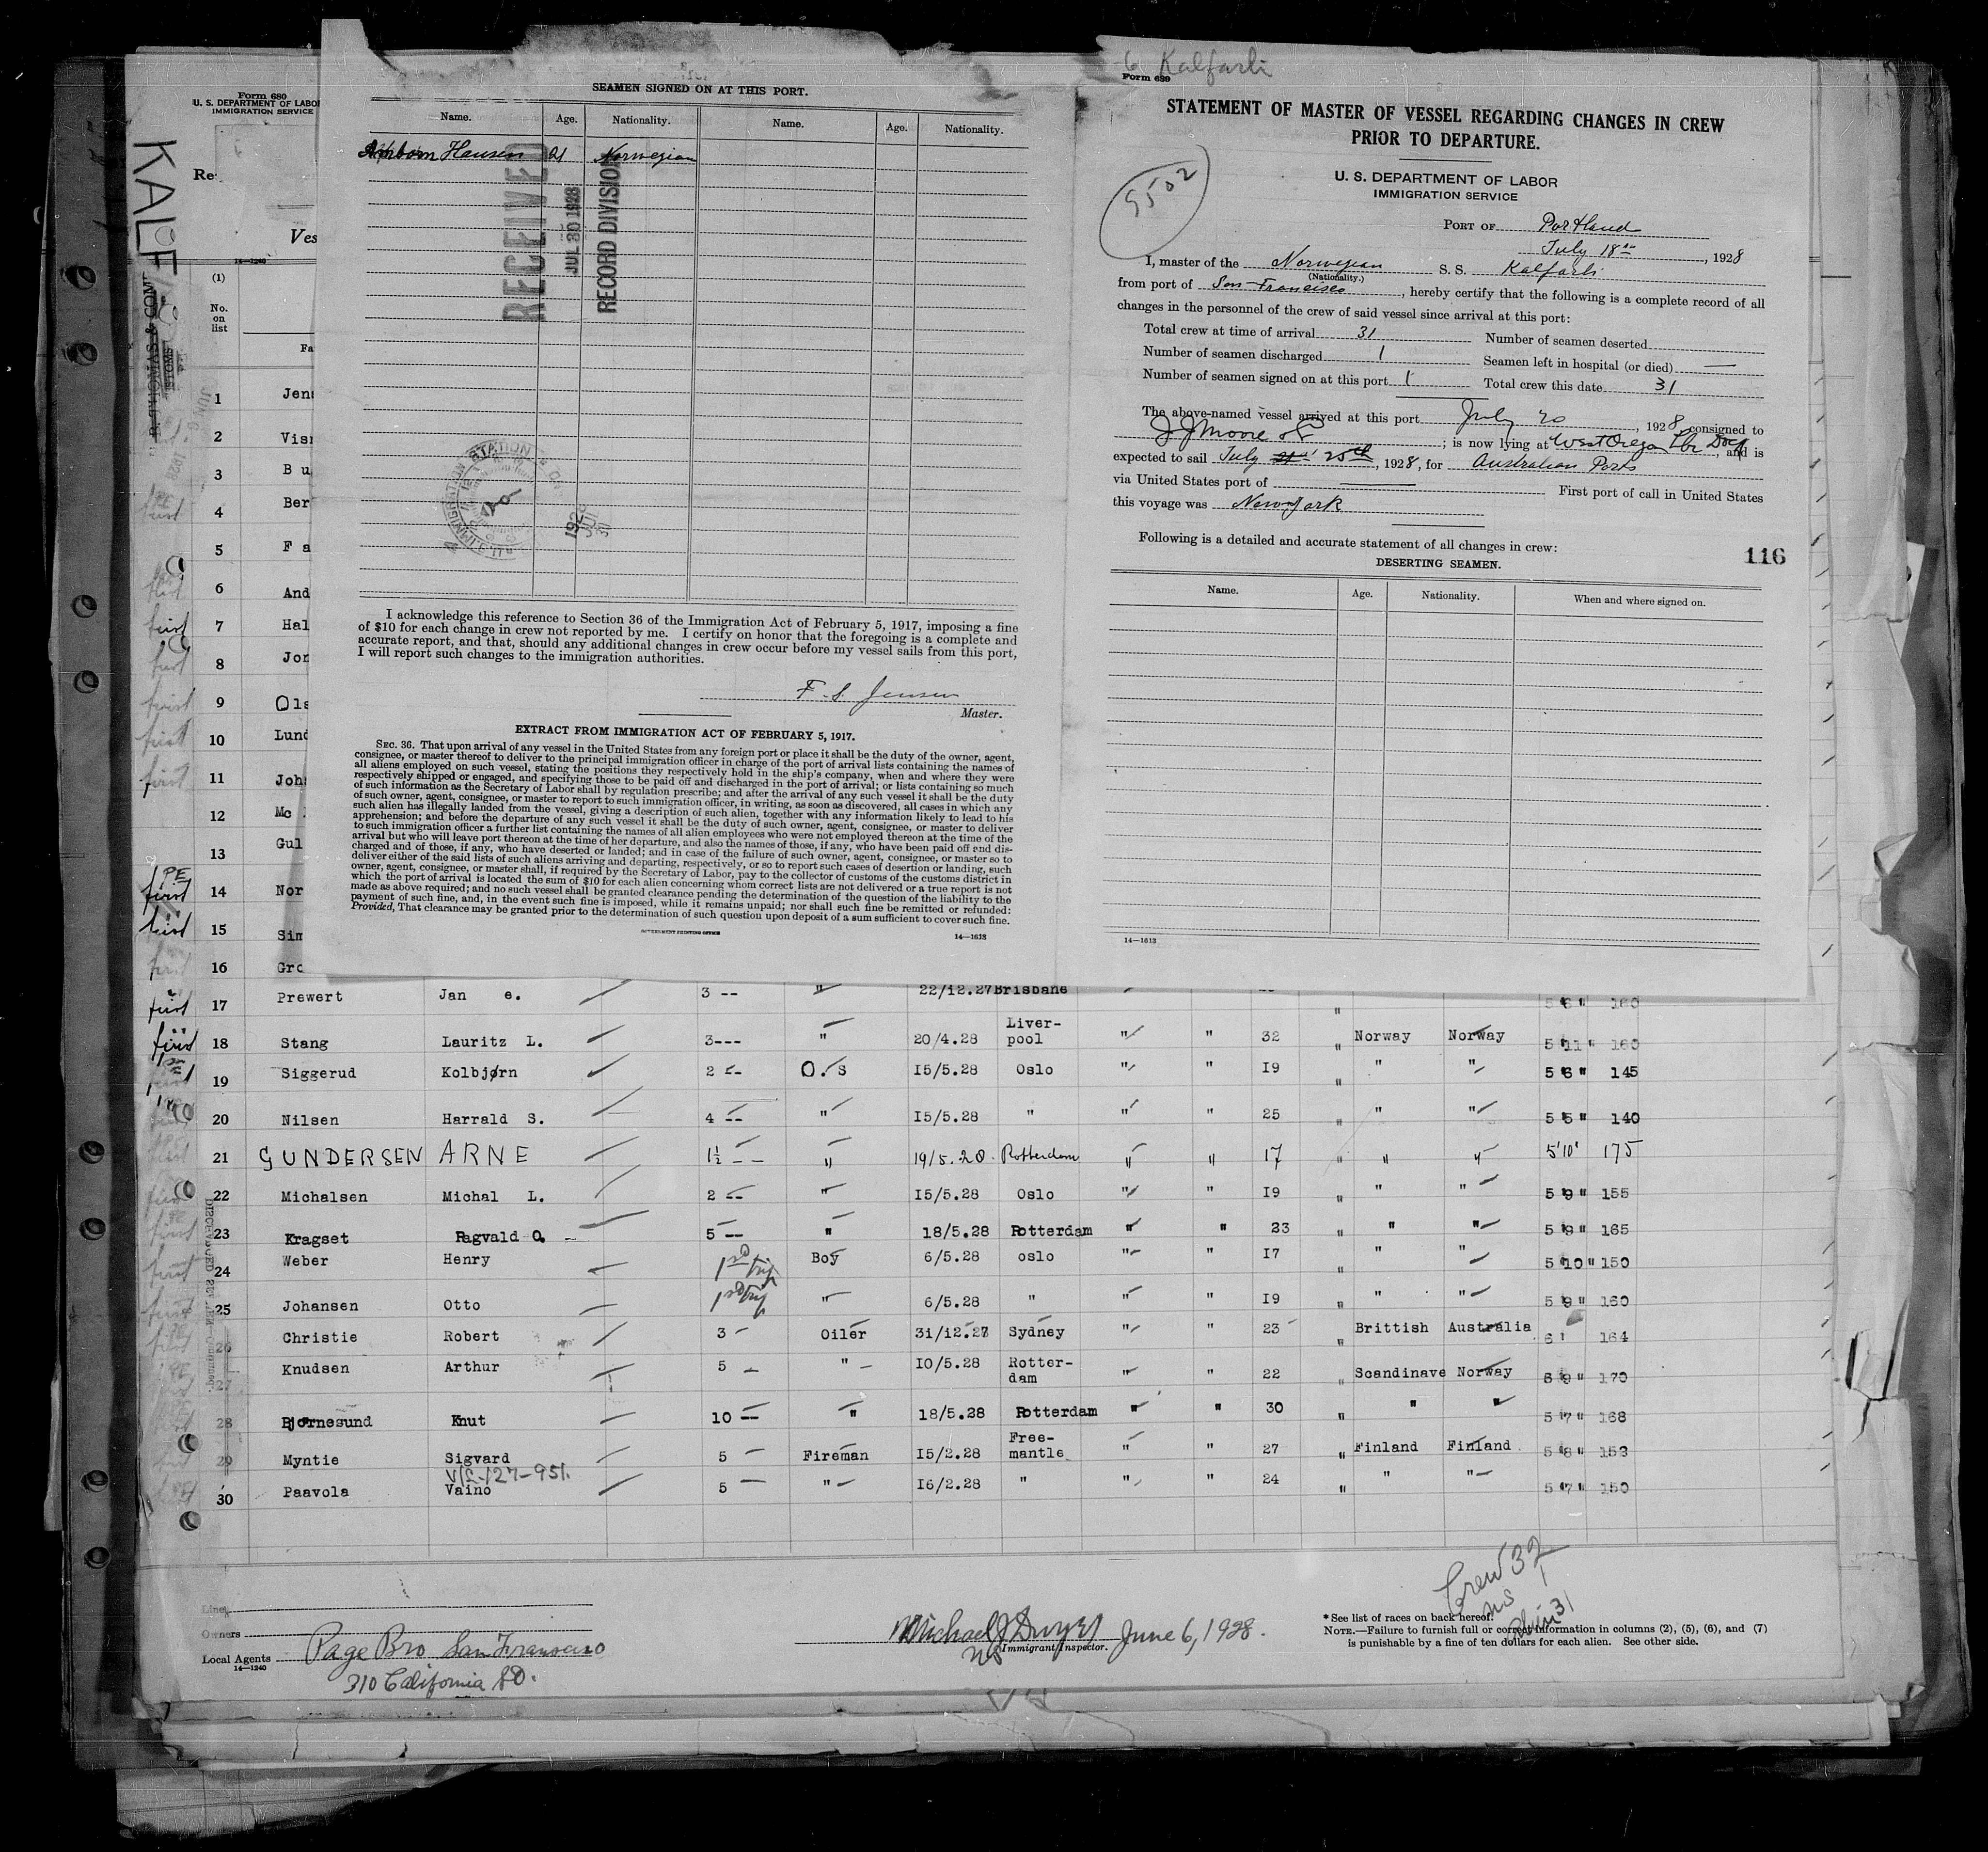 Form 680
U. S. DEPARTMENT OF LABOR
IMMIGRATION SERVICE
KALF
Ves
14—1240
(1)
No.
on
list
Fa
1 Jens
2 Visn
3 Bu
4 Ber
5 Fa
6 And
7 Hal
8 Jon
9 Ols
10 Lund
11 Joh
12 Mc
13 Gul
14 Nor
15 Sim
16 Gro
SEAMEN SIGNED ON AT THIS PORT.
Name. Age. Nationality. Name. Age. Nationality.
Hansen 21 Norwegian
RECEIVED
JUL 30 1928
RECORD DIVISION
I acknowledge this reference to Section 36 of the Immigration Act of February 5, 1917, imposing a fine
of $10 for each change in crew not reported by me. I certify on honor that the foregoing is a complete and
accurate report, and that, should any additional changes in crew occur before my vessel sails from this port,
I will report such changes to the immigration authorities.
F. S. Jensen
Master.
EXTRACT FROM IMMIGRATION ACT OF FEBRUARY 5, 1917.
SEC. 36. That upon arrival of any vessel in the United States from any foreign port or place it shall be the duty of the owner, agent,
consignee, or master thereof to deliver to the principal immigration officer in charge of the port of arrival lists containing the names of
all aliens employed on such vessel, stating the positions they respectively hold in the ship's company, when and where they were
respectively shipped or engaged, and specifying those to be paid off and discharged in the port of arrival; or lists containing so much
of such information as the Secretary of Labor shall by regulation prescribe; and after the arrival of any such vessel it shall be the duty
of such owner, agent, consignee, or master to report to such immigration officer, in writing, as soon as discovered, all cases in which any
such alien has illegally landed from the vessel, giving a description of such alien, together with any information likely to lead to his
apprehension; and before the departure of any such vessel it shall be the duty of such owner, agent, consignee, or master to deliver
to such immigration officer a further list containing the names of all alien employees who were not employed thereon at the time of the
arrival but who will leave port thereon at the time of her departure, and also the names of those, if any, who have been paid off and dis-
charged and of those, if any, who have deserted or landed; and in case of the failure of such owner, agent, consignee, or master so to
deliver either of the said lists of such aliens arriving and departing, respectively, or so to report such cases of desertion or landing, such
owner, agent, consignee, or master shall, if required by the Secretary of Labor, pay to the collector of customs of the customs district in
which the port of arrival is located the sum of $10 for each alien concerning whom correct lists are not delivered or a true report is not
made as above required; and no such vessel shall be granted clearance pending the determination of the question of the liability to the
payment of such fine, and, in the event such fine is imposed, while it remains unpaid; nor shall such fine be remitted or refunded:
Provided, That clearance may be granted prior to the determination of such question upon deposit of a sum sufficient to cover such fine.
GOVERNMENT PRINTING OFFICE 14—1613
6 Kalfarli
Form 689
STATEMENT OF MASTER OF VESSEL REGARDING CHANGES IN CREW
PRIOR TO DEPARTURE.
5502
U. S. DEPARTMENT OF LABOR
IMMIGRATION SERVICE
PORT OF Portland
July 18th, 1928
I, master of the Norwegian S. S. Kalfarli
(Nationality.)
from port of San Francisco, hereby certify that the following is a complete record of all
changes in the personnel of the crew of said vessel since arrival at this port:
Total crew at time of arrival 31 Number of seamen deserted
Number of seamen discharged 1 Seamen left in hospital (or died) —
Number of seamen signed on at this port 1 Total crew this date 31
The above-named vessel arrived at this port July 20, 1928, consigned to
J J Moore; is now lying at West Oregon Lbr Dock, and is
expected to sail July 25th, 1928, for Australian Ports
via United States port of — First port of call in United States
this voyage was New York
Following is a detailed and accurate statement of all changes in crew:
116
DESERTING SEAMEN.
Name. Age. Nationality. When and where signed on.
14—1613
17 Prewert Jan e. 3 -- " 22/12.27 Brisbane " 5 6 " 160
18 Stang Lauritz L. 3--- " 20/4.28 Liver-pool " " 32 " Norway Norway 5 11 " 160
19 Siggerud Kolbjørn 2 -- O.S 15/5.28 Oslo " " 19 " " " 5 6 " 145
20 Nilsen Harrald S. 4 -- " 15/5.28 " " " 25 " " " 5 5 " 140
21 GUNDERSEN ARNE 1½ -- " 19/5.28 Rotterdam " " 17 " " " 5'10' 175
22 Michalsen Michal L. 2 -- " 15/5.28 Oslo " " 19 " " " 5 9 " 155
23 Kragset Ragvald O. 5 -- " 18/5.28 Rotterdam " " 23 " " " 5 9 " 165
24 Weber Henry 1st trip Boy 6/5.28 oslo " " 17 " " " 5 10 " 150
25 Johansen Otto 1st trip " 6/5.28 " " " 19 " " " 5 9 " 160
26 Christie Robert 3 - Oiler 31/12.27 Sydney " " 23 " Brittish Australia 6' 164
27 Knudsen Arthur 5 - " 10/5.28 Rotter-dam " " 22 " Scandinave Norway 5 9 " 170
28 Bjørnesund Knut 10 -- " 18/5.28 Rotterdam " " 30 " " " 5 7 " 168
29 Myntie Sigvard 5 - Fireman 15/2.28 Free-mantle " " 27 " Finland Finland 5 8 " 153
V/L-127-951.
30 Paavola Vaino 5 - " 16/2.28 " " " 24 " " " 5 7 " 150
Line
Owners
Local Agents Page Bro San Fransisco
14—1240
310 California St.
Michael J Dwyer June 6, 1928.
Immigrant Inspector.
Crew 32
US 1
Alien 31
* See list of races on back hereof.
NOTE.—Failure to furnish full or correct information in columns (2), (5), (6), and (7)
is punishable by a fine of ten dollars for each alien. See other side.